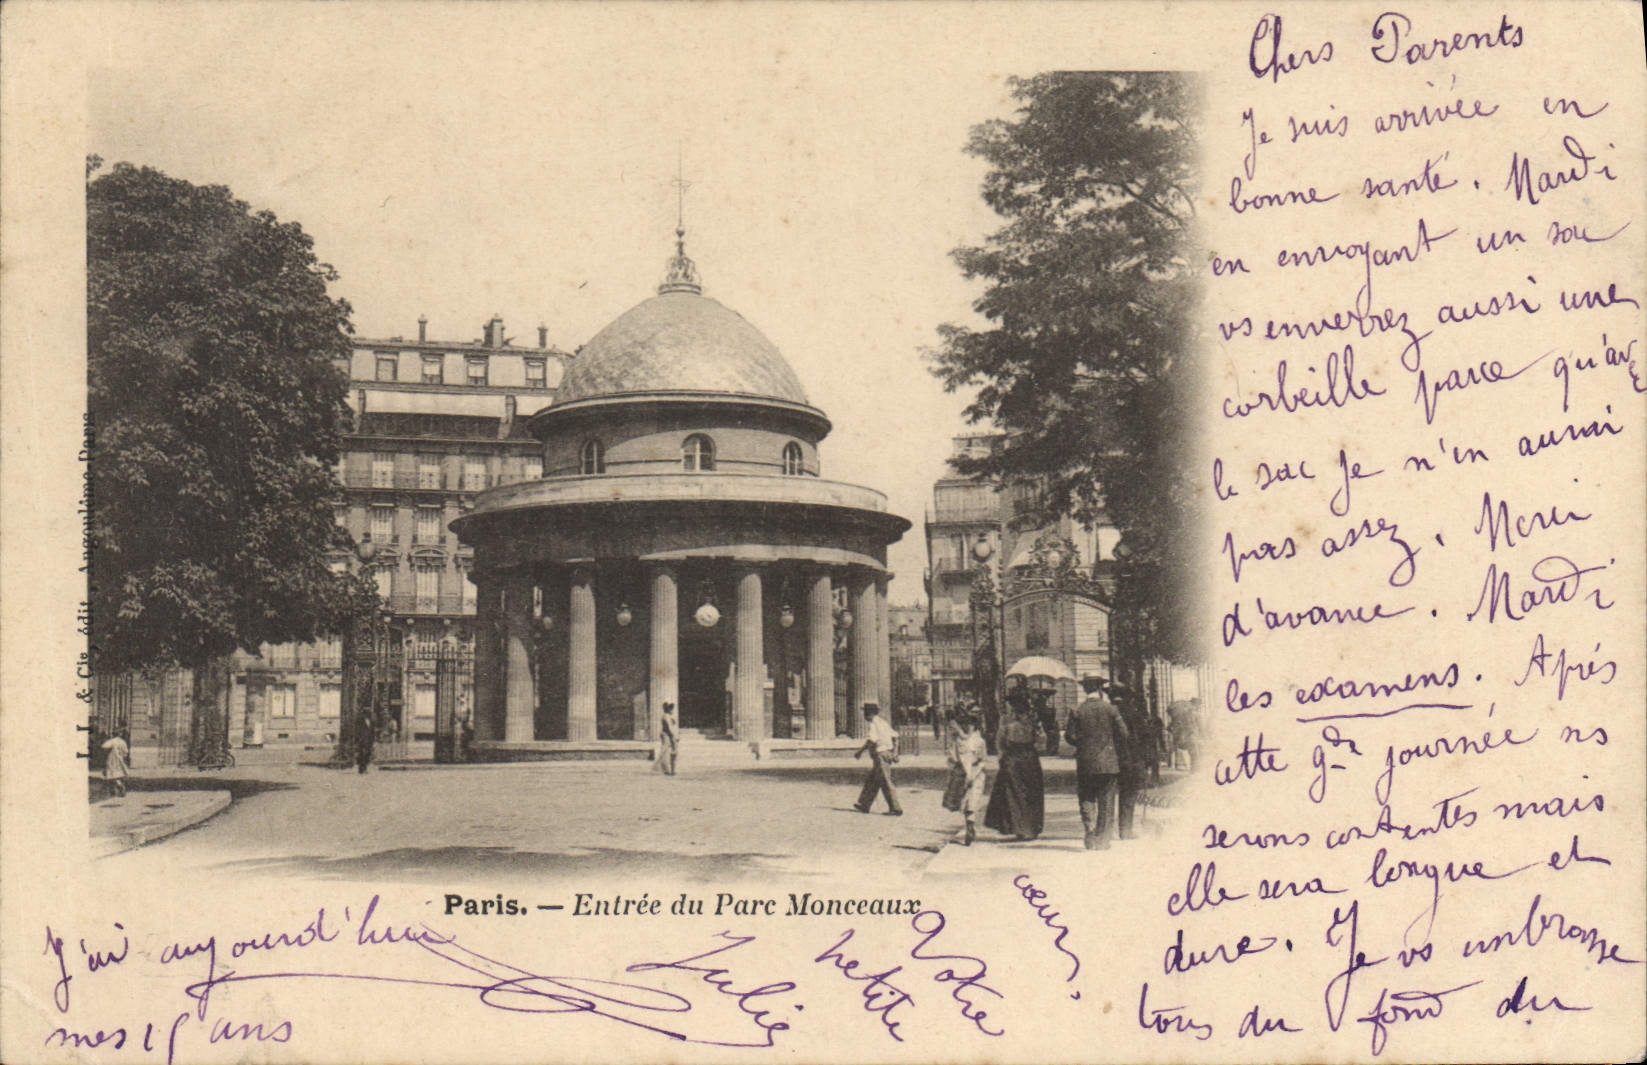 Chers Parents
Je suis arrivée en
bonne santé. Mardi
en envoyant un sac
vs enverrez aussi une
corbeille parce qu'avec
le sac je n'en aurai
pas assez. Merci
d'avance. Mardi
les examens. Après
cette gde journée ns
serons contentes mais
elle sera longue et
dure. Je vs embrasse
tous du fond du
cœur.
Votre
petite
Julie
J'ai aujourd'hui
mes 15 ans
Paris. — Entrée du Parc Monceaux
L. L. & Cie édit. Angoulême-Paris